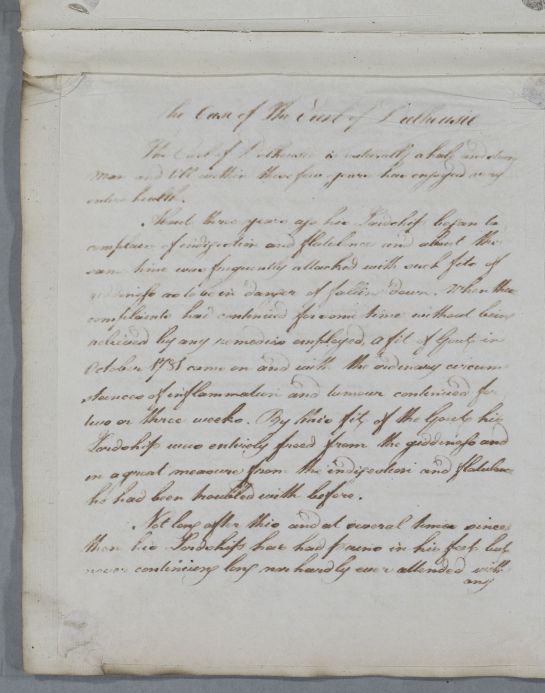 The Case of The Earl of Dalhousie
The Earl of Dalhousie is naturally a hale and strong
man and till within these few years has enjoyed very
entire health.
About three years ago his Lordship began to
complain of indigestion and flatulence and about the
same time was frequently attacked with such fits of
giddiness as to be in danger of falling down. When these
complaints had continued for some time without being
relieved by any remedies employed, a fit of Gout in
October 1781 came on and with the ordinary circum
stances of inflammation and tumour continued for
two or three weeks. By this fit of the Gout his
Lordship was entirely freed from the giddiness and
in a great measure from the indigestion and flatulence
he had been troubled with before.
Not long after this and at several times since
then his Lordship has had pains in his feet but
never continuing long nor hardly ever attended with
any